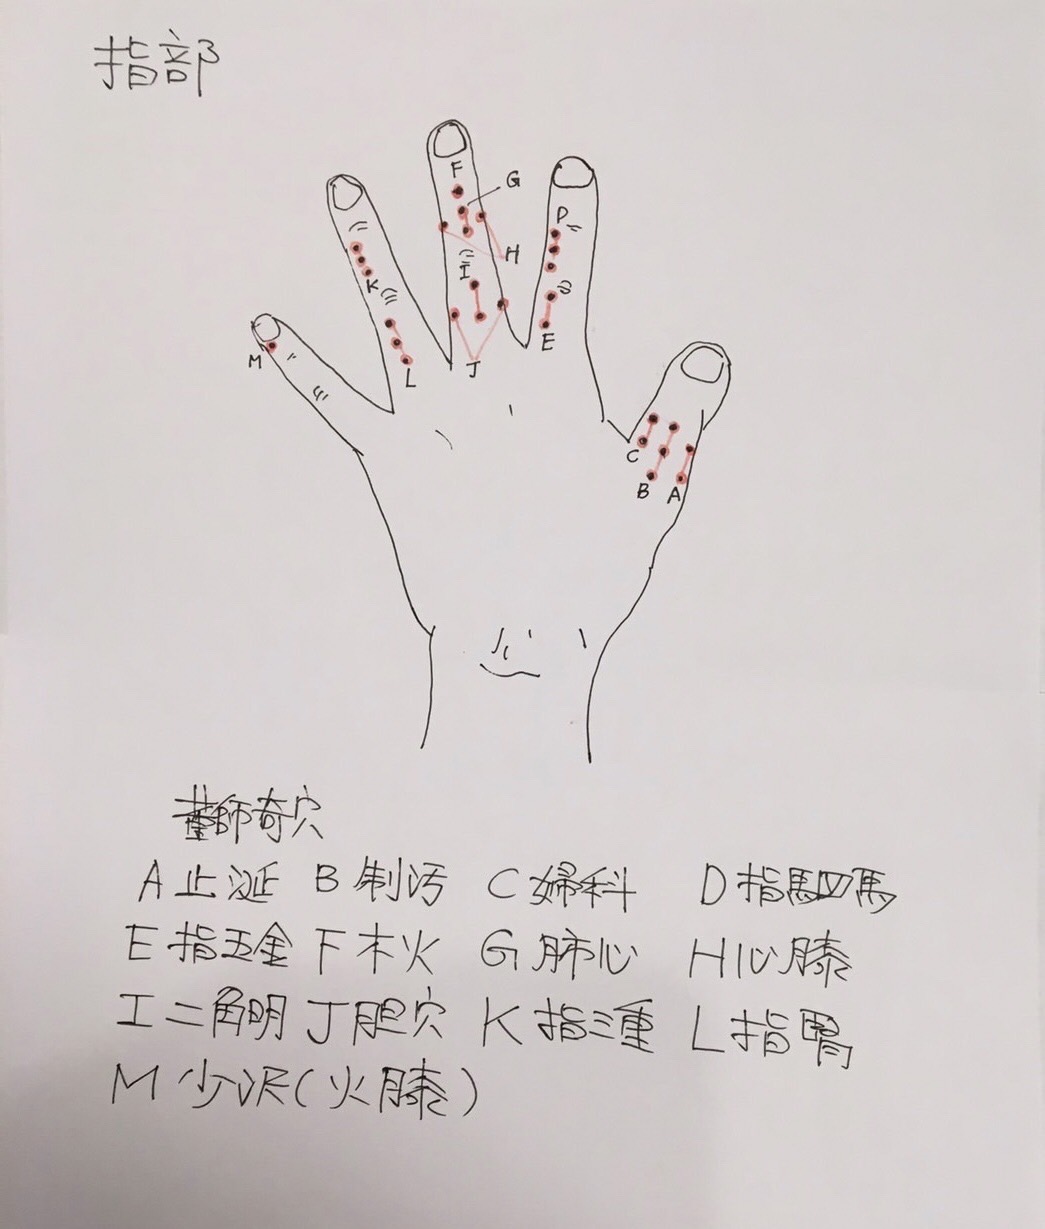 指部
F
G
P
H
I
K
E
M
L
J
C
B A
董師奇穴
A 止涎 B 制污 C 婦科 D 指駟馬
E 指五金 F 木火 G 肺心 H 心膝
I 二角明 J 胆穴 K 指三重 L 指腎
M 少沢(火膝)